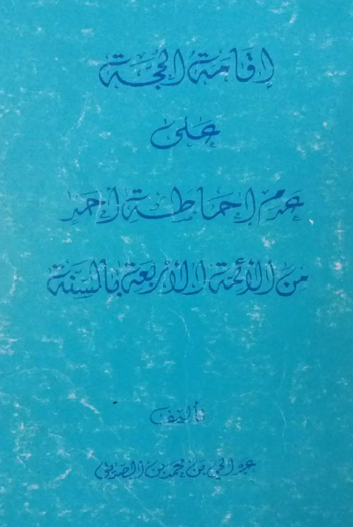 إقامة الحجة
على
عدم إحاطة أحد
من الأئمة الأربعة بالسنة
تأليف
عبد الحي بن محمد بن الصديق